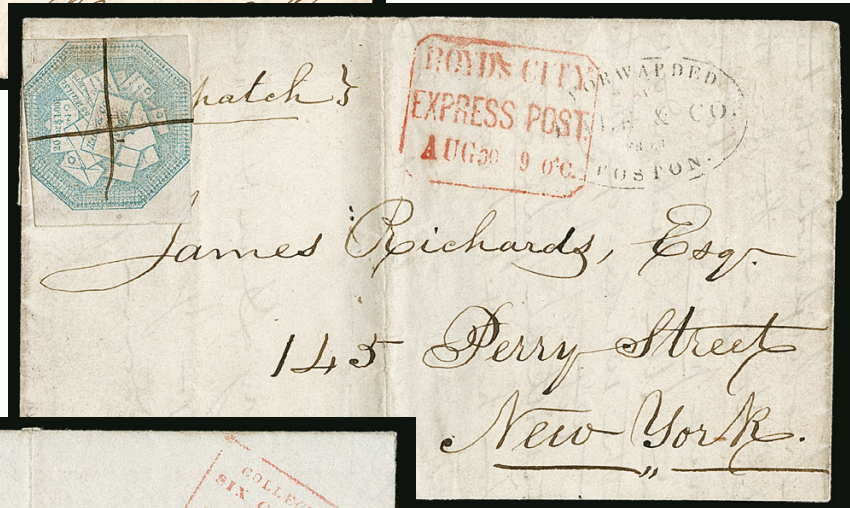 patch
BOYD'S CITY
EXPRESS POST.
AUG 30 9 O'C.
FORWARDED
& CO.
FROM
BOSTON.
20 for $1.00
James Richards, Esqr.
145 Perry Street
New York.
COLLECT
SIX